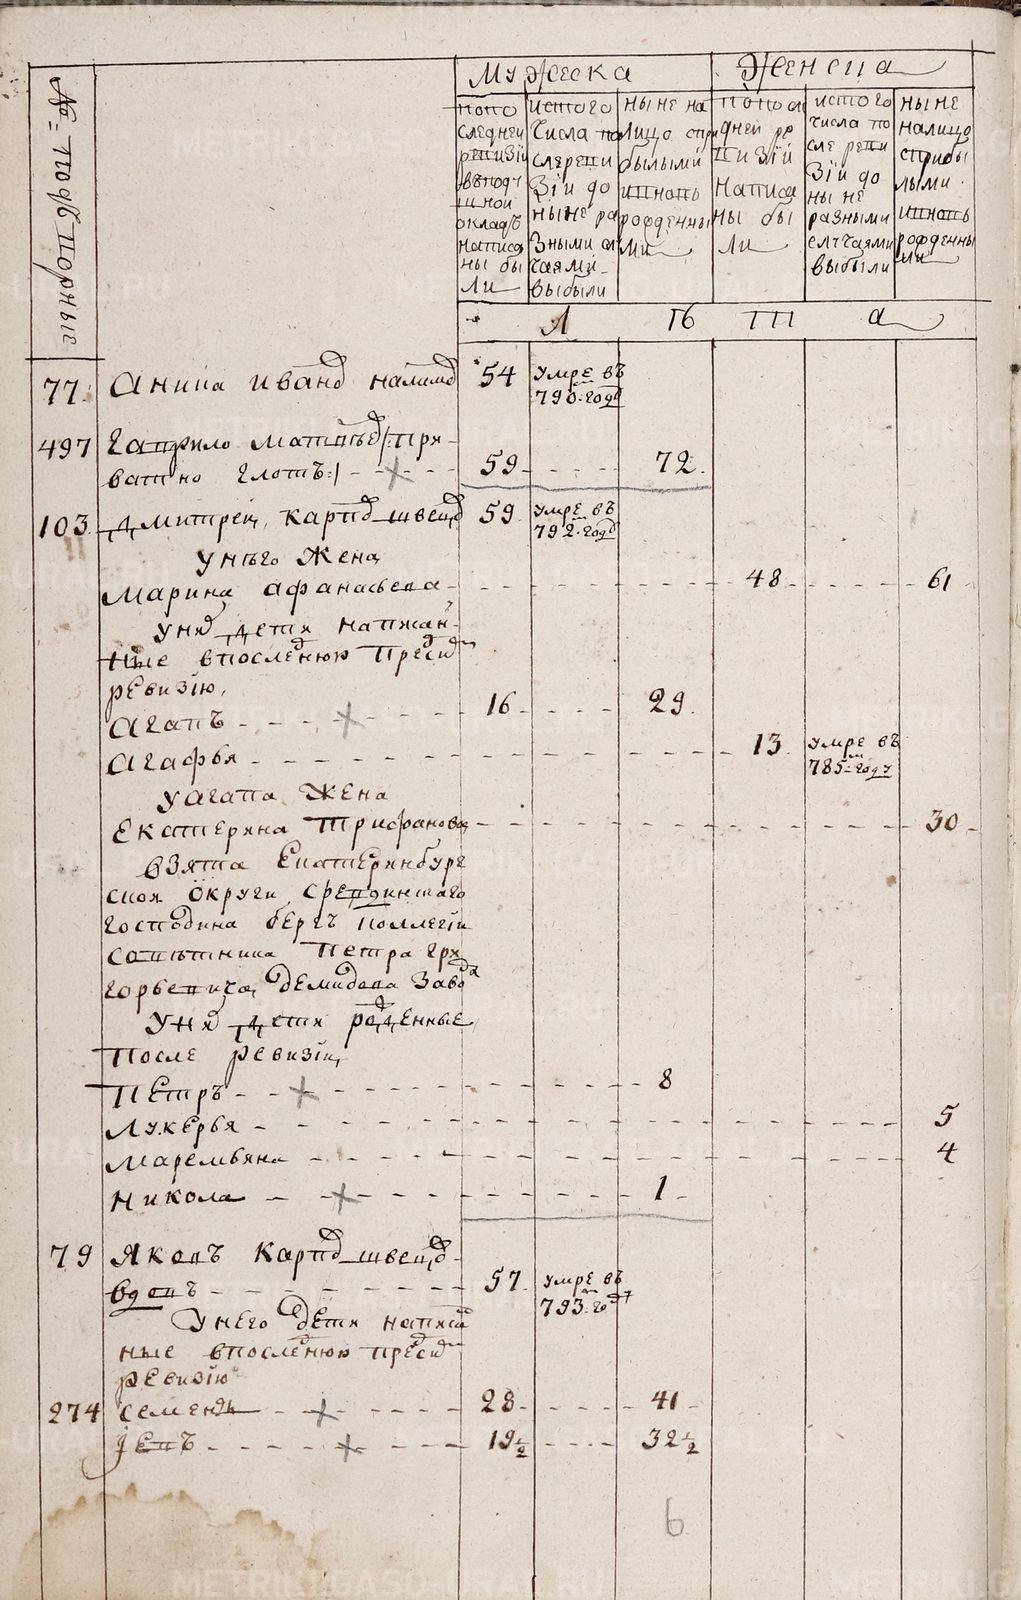 № подворные
Мужеска
Женска
по по
следней
ревизии
в поду
шной
окладъ
написа
ны бы
ли
ис того
числа по
сле реви
зiи до
ныне ра
зными слу
чаями
выбыли
ныне на
лицо при
былыми
и вновь
рожденны
ми
по по сле
дней ре
визiи
написа
ны бы
ли
ис того
числа по
сле реви
зiи до
ныне
разными
случаями
выбыли
ныне
на лицо
с прибы
лыми
и вновь
рожденны
ми
Л Ѣ Т а
77 Аника Иванов 54 умре въ
790 году
497 Гаврило Матвѣев /: при
ватно Глотъ :/ 59 72
103 Дмитрей Карпов Швецов 59 умре въ
792 году
У него жена
Марина Афанасьева 48 61
У них дети написан
ные в последнюю пред сим
ревизiю
Агапъ 16 29
Агафья 13 умре въ
785 году
У Агапа жена
Екатерина Трифанова 30
взята Екатеринбург
ской округи
господина берг коллегiи
советника Петра Гри
горьевича Демидова заво
У них дети рожденные
после ревизiи
Петръ 8
Лукерья 5
Маремьяна 4
Никола 1
79 Яковъ Карпов Швецов
вдовъ 57 умре въ
793 году
У него дети написан
ные в последнюю пред сим
ревизiю
274 Семенъ 28 41
Iевъ 19 1/2 32 1/2
6
METRIKI.GASO-URAL.RU